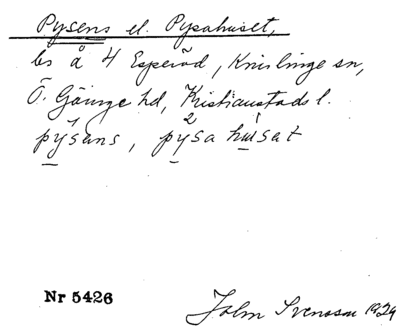 Pysens el. Pysahuset,
bs å 4 Esperöd, Knislinge sn,
Ö. Göinge hd, Kristianstads l.
pysens, pysahuset
Nr 5426
John Svensson 1929